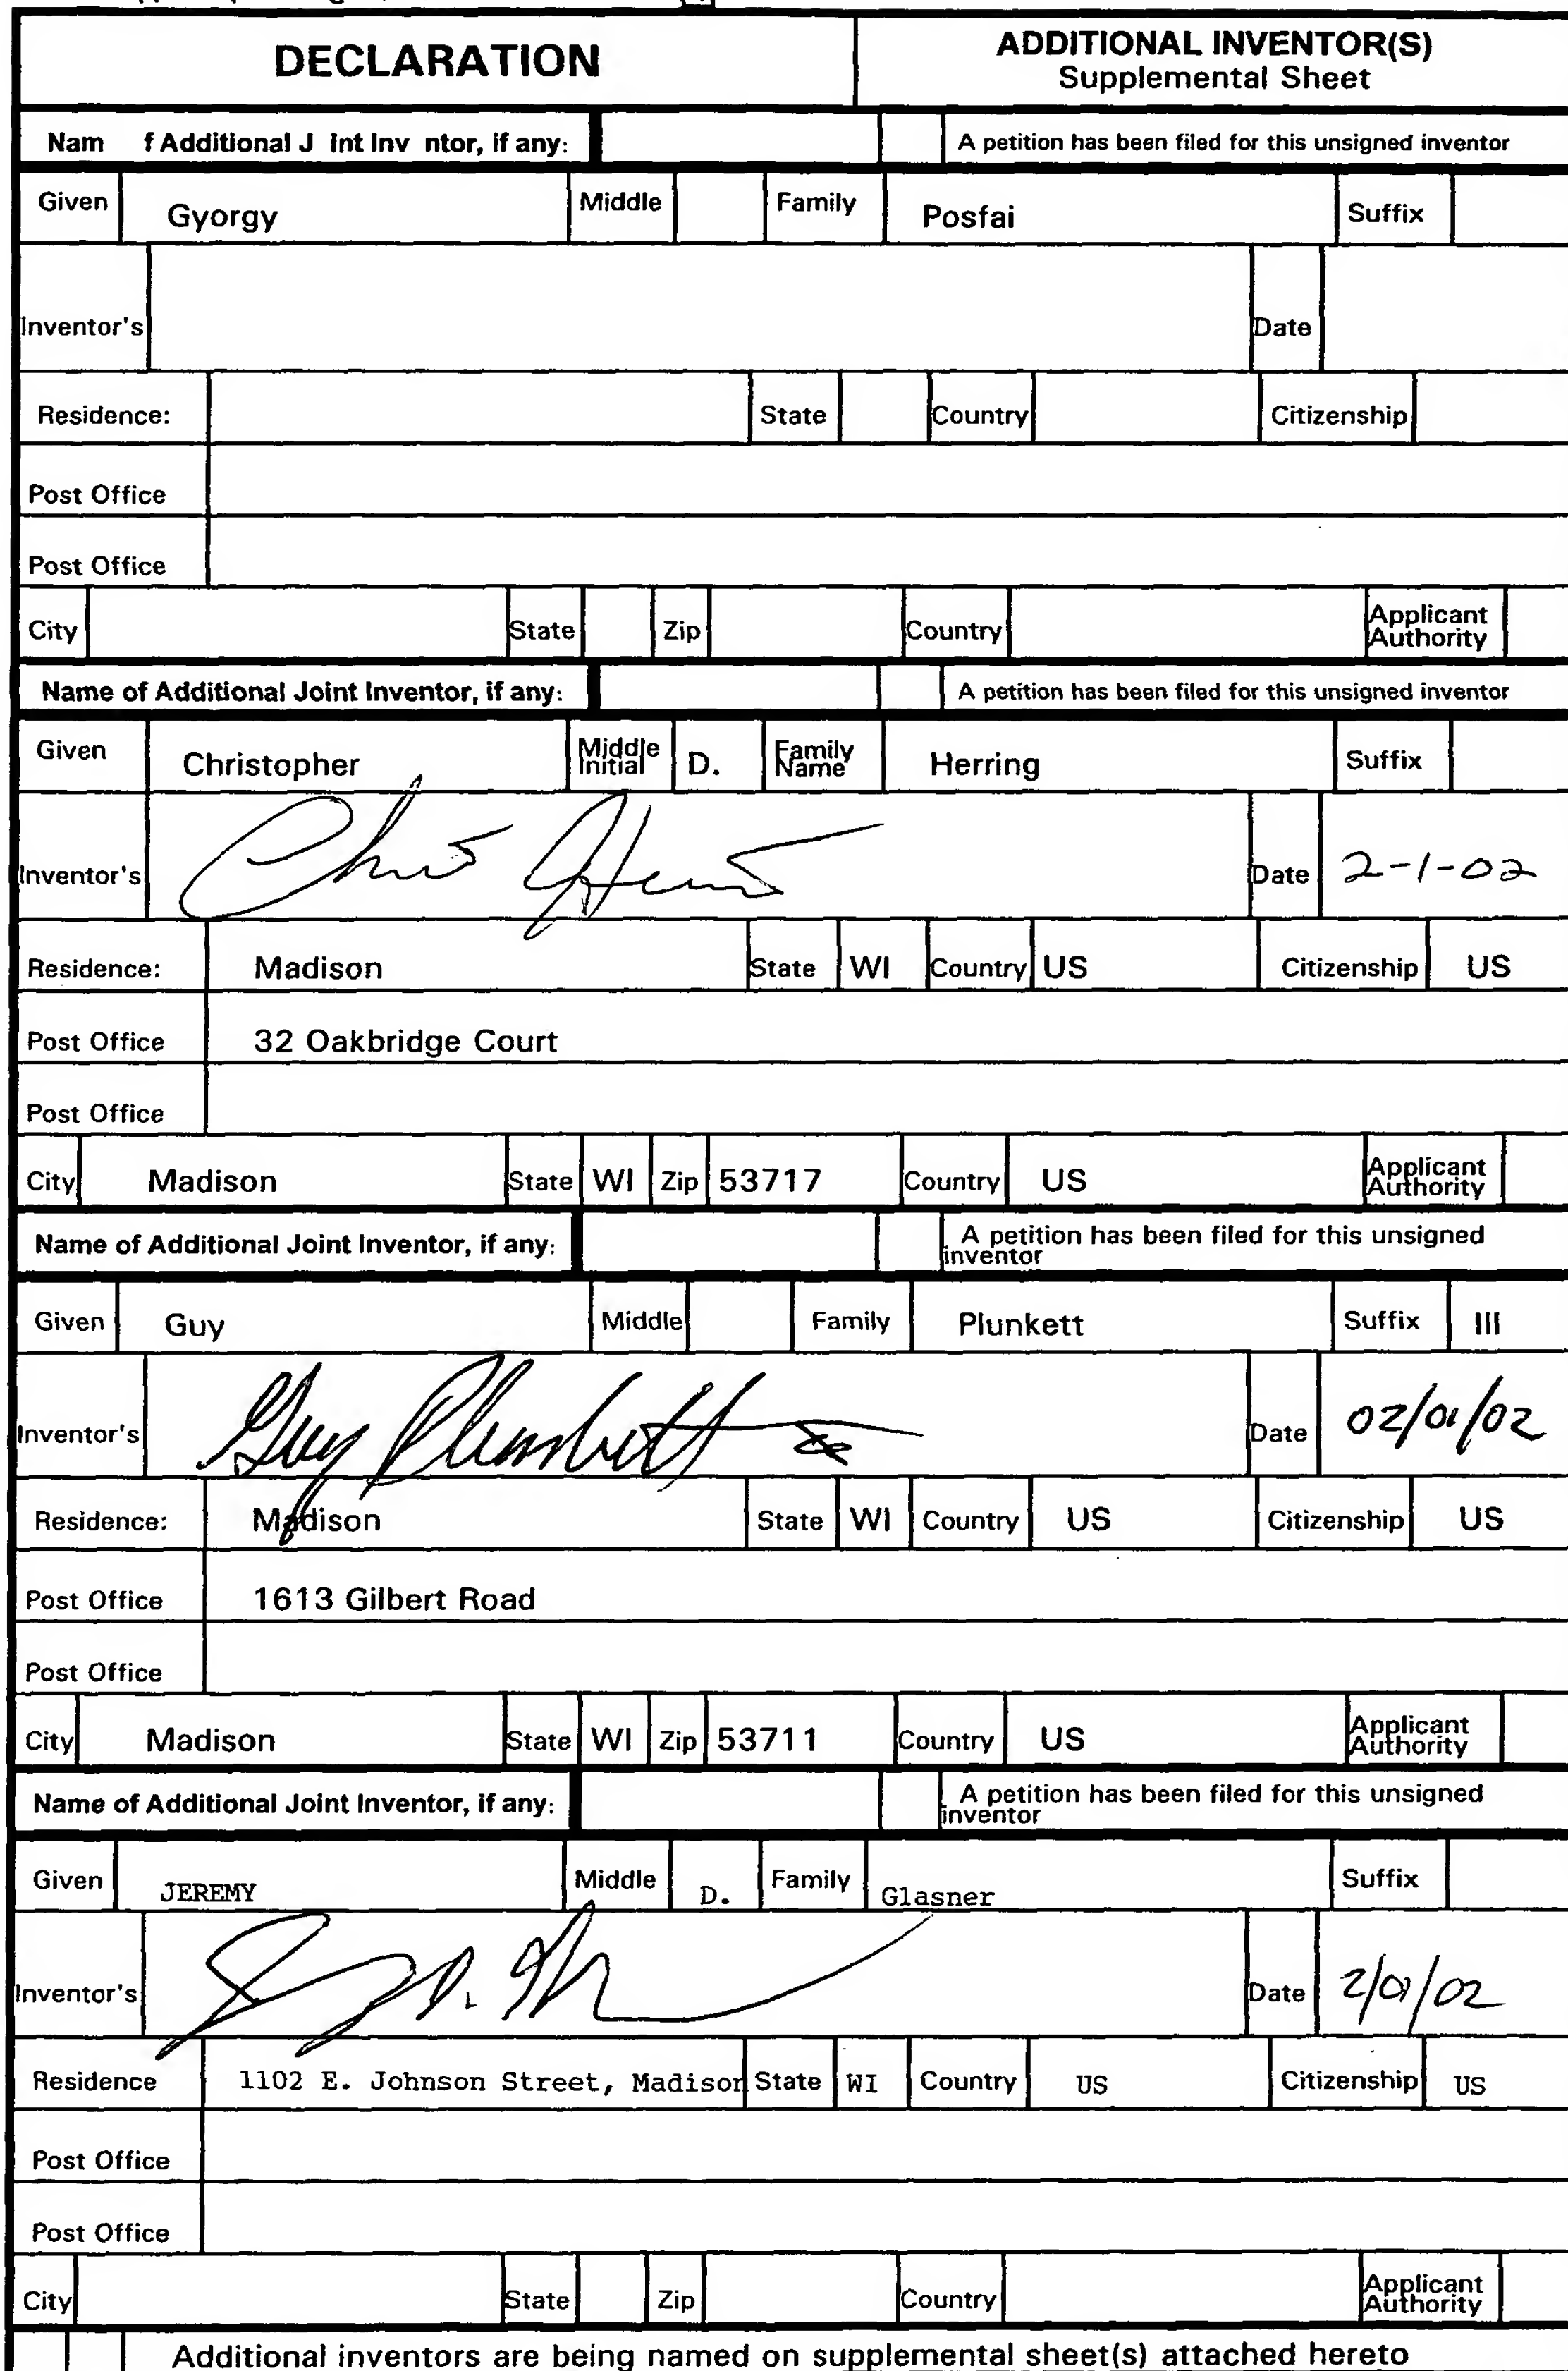 DECLARATION ADDITIONAL INVENTOR(S)
Supplemental Sheet
Nam f Additional J int Inv ntor, if any: A petition has been filed for this unsigned inventor
Given Gyorgy Middle Family Posfai Suffix
Inventor's Date
Residence: State Country Citizenship
Post Office
Post Office
City State Zip Country Applicant Authority
Name of Additional Joint Inventor, if any: A petition has been filed for this unsigned inventor
Given Christopher Middle Initial D. Family Name Herring Suffix
Inventor's Date 2-1-02
Residence: Madison State WI Country US Citizenship US
Post Office 32 Oakbridge Court
Post Office
City Madison State WI Zip 53717 Country US Applicant Authority
Name of Additional Joint Inventor, if any: A petition has been filed for this unsigned inventor
Given Guy Middle Family Plunkett Suffix III
Inventor's Guy Plunkett Date 02/01/02
Residence: Madison State WI Country US Citizenship US
Post Office 1613 Gilbert Road
Post Office
City Madison State WI Zip 53711 Country US Applicant Authority
Name of Additional Joint Inventor, if any: A petition has been filed for this unsigned inventor
Given JEREMY Middle D. Family Glasner Suffix
Inventor's Date 2/01/02
Residence 1102 E. Johnson Street, Madison State WI Country US Citizenship US
Post Office
Post Office
City State Zip Country Applicant Authority
Additional inventors are being named on supplemental sheet(s) attached hereto